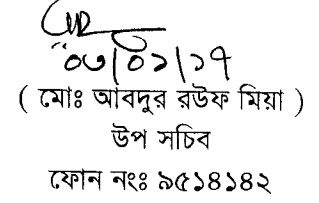 ০৩/০১/১৭
( মোঃ আবদুর রউফ মিয়া )
উপ সচিব
ফোন নংঃ ৯৫১৪১৪২